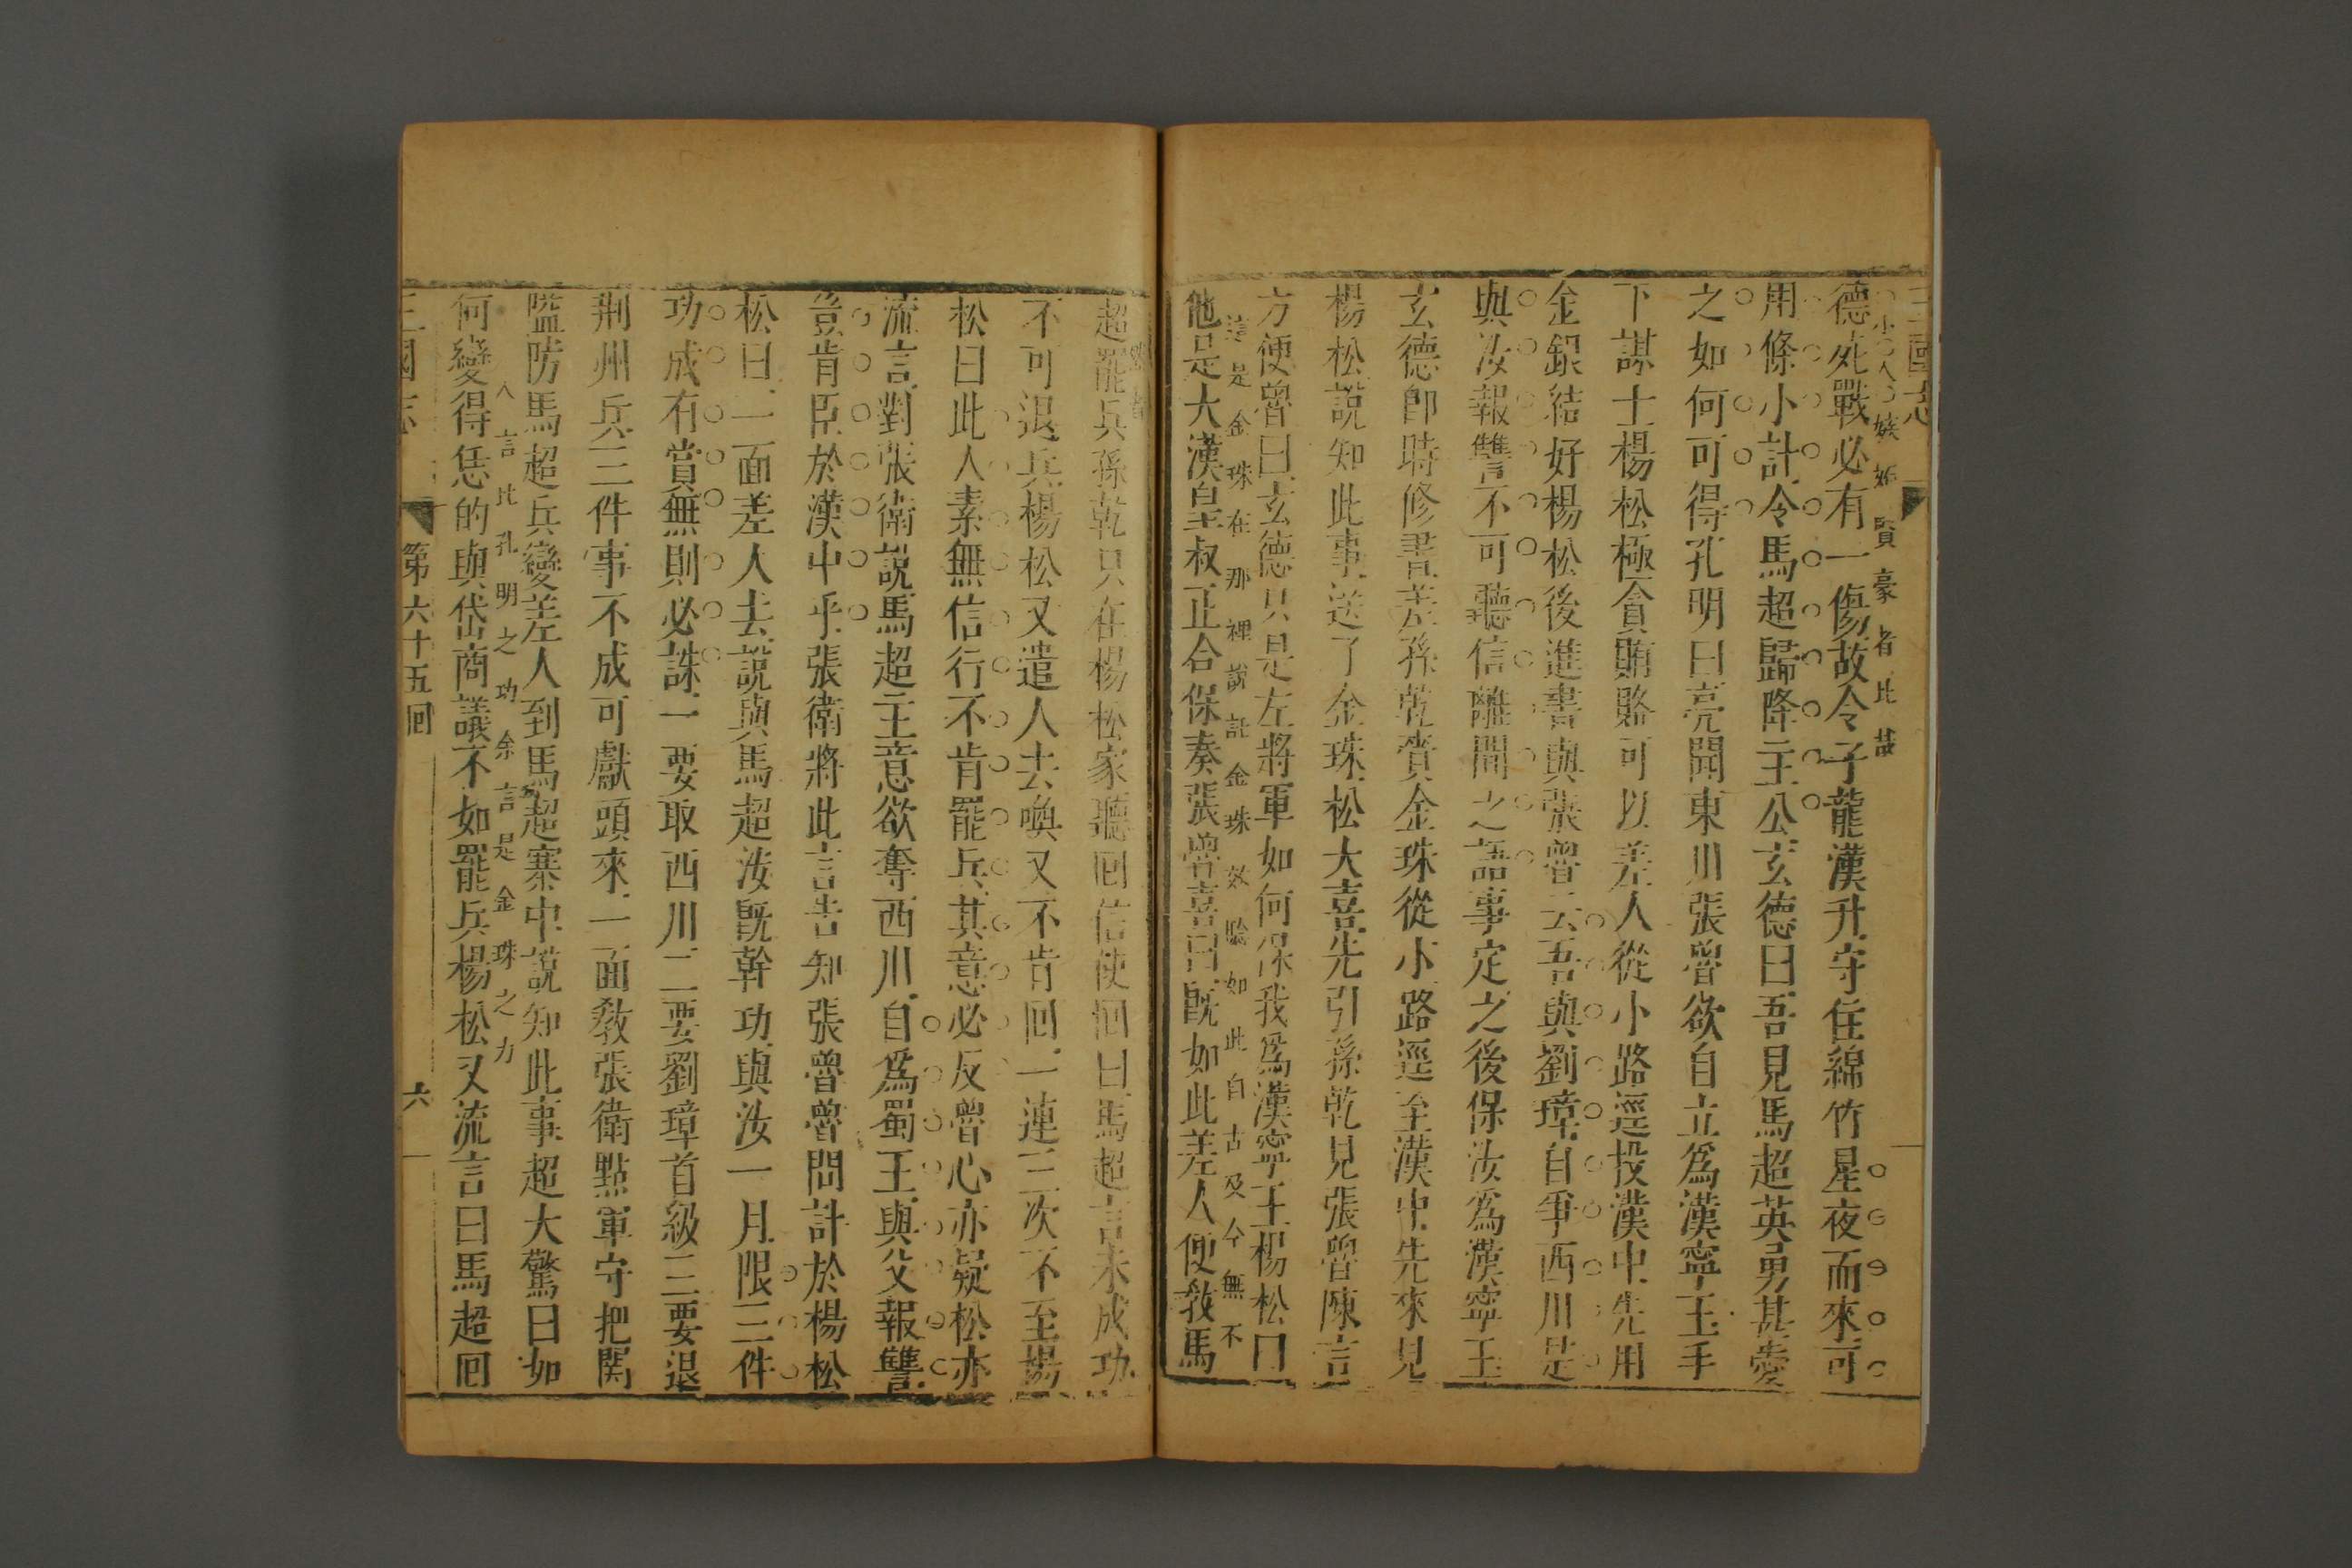 三國志
德死戰必有一傷故令子龍漢升守住綿竹星夜而來可
小人嫉妬賢豪者比故
用條小計令馬超歸降主公玄德曰吾見馬超英勇甚愛
之如何可得孔明曰亮聞東川張魯欲自立爲漢寧王手
下謀士楊松極貪賄賂可以差人從小路逕投漢中先用
金銀結好楊松後進書與張魯云吾與劉璋自爭西川是
與汝報讐不可聽信離間之語事定之後保汝爲漢寧王
玄德卽時修書差孫乾賫金珠從小路逕至漢中先來見
楊松說知此事送了金珠松大喜先引孫乾見張魯陳言
方便魯曰玄德只是左將軍如何保我爲漢寧王楊松曰
這是金珠在那裡說話金珠效驗如此自古及今無不
他是大漢皇叔正合保奏張魯喜曰旣如此差人便敎馬
超罷兵孫乾只在楊松家聽囘信使囘曰馬超言未成功
不可退兵楊松又遣人去喚又不肯囘一連三次不至楊
松曰此人素無信行不肯罷兵其意必反魯心亦疑松亦
流言對張衛說馬超主意欲奪西川自爲蜀王與父報讐
豈肯臣於漢中乎張衛將此言告知張魯魯問計於楊松
松曰一面差人去說與馬超汝旣幹功與汝一月限三件
功成有賞無則必誅一要取西川二要劉璋首級三要退
荆州兵三件事不成可獻頭來一面敎張衛點軍守把關
隘防馬超兵變差人到馬超寨中說知此事超大驚曰如
人言比孔明之功余言是金珠之力
何變得恁的與岱商議不如罷兵楊松又流言曰馬超囘
三國志
第六十五囘
六